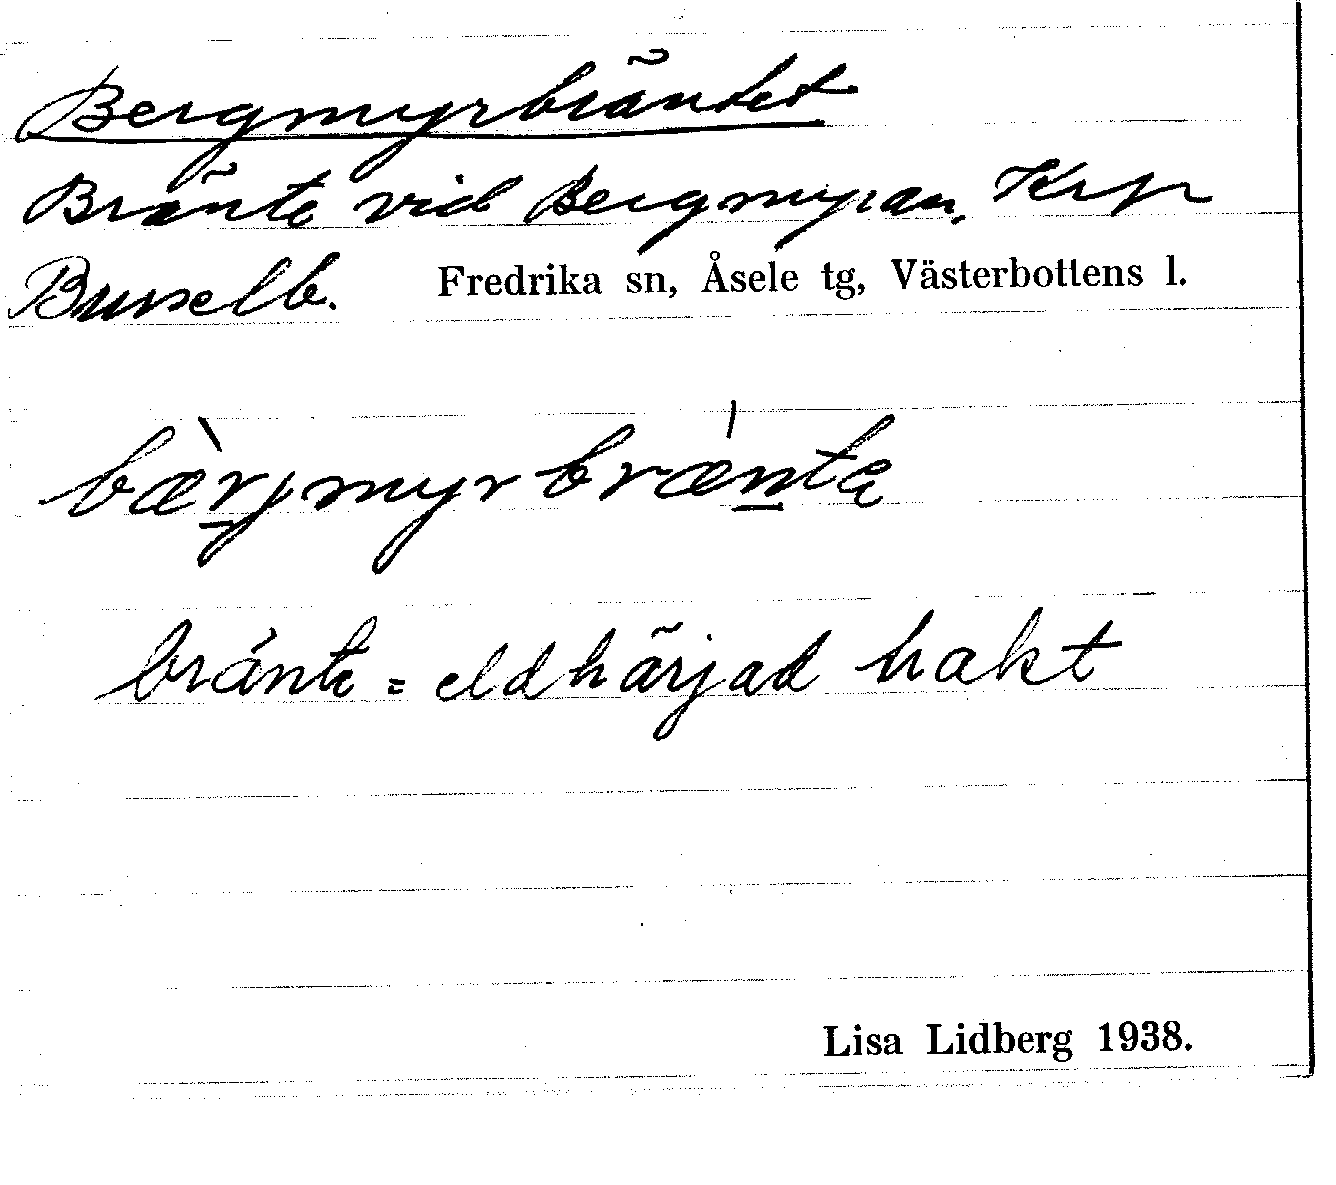 Bergmyrbräntet
Bränte vid Bergmyran, Krp
Burselb. Fredrika sn, Åsele tg, Västerbottens l.
bæ̀rjmyrbræ̍nta
bränte = eldhärjad trakt
Lisa Lidberg 1938.